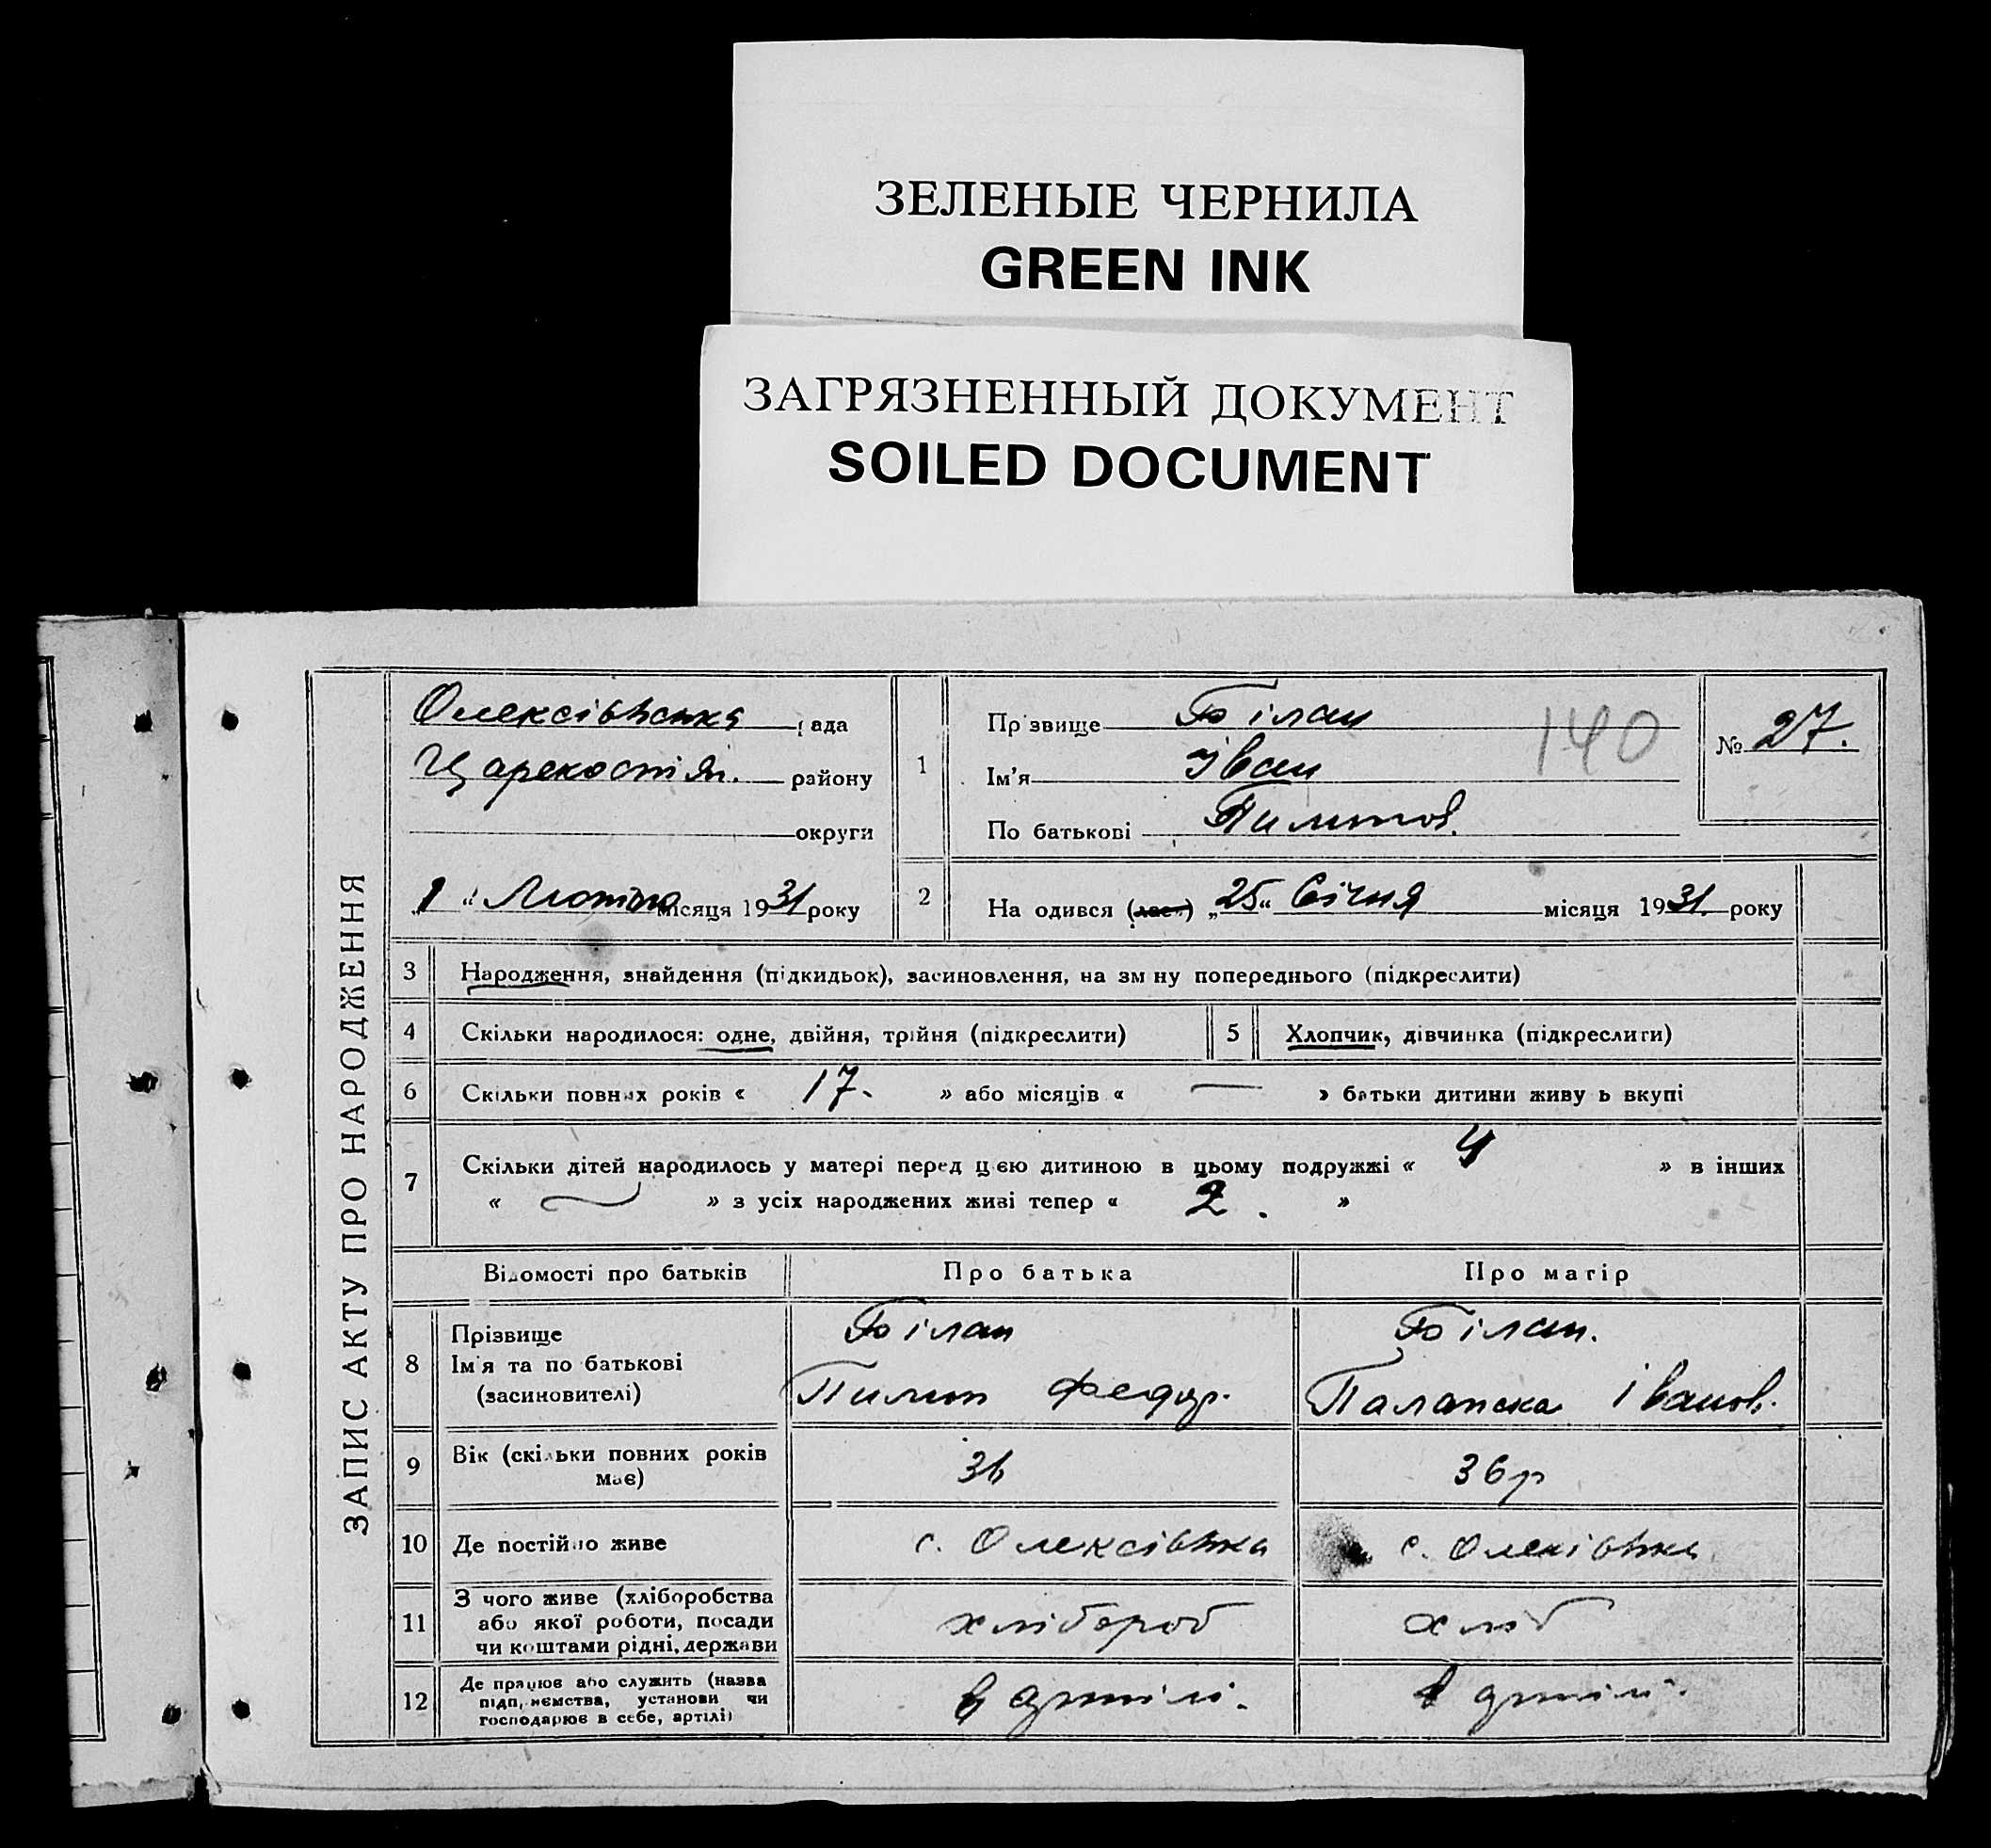 ЗЕЛЕНЫЕ ЧЕРНИЛА
GREEN INK
ЗАГРЯЗНЕННЫЙ ДОКУМЕНТ
SOILED DOCUMENT
ЗАПИС АКТУ ПРО НАРОДЖЕННЯ
Олексіївська рада
району
округи
„1“ Лютого місяця 1931 року
1
Прізвище Білан
Ім'я Іван
По батькові Пилипов.
140
№ 27.
2 Народився (лась) „25“ Січня місяця 1931. року
3 Народження, знайдення (підкидьок), засиновлення, на зміну попереднього (підкреслити)
4 Скільки народилося: одне, двійня, трійня (підкреслити)
5 Хлопчик, дівчинка (підкреслити)
6 Скільки повних років « 17. » або місяців « — » батьки дитини живуть вкупі
7 Скільки дітей народилось у матері перед цією дитиною в цьому подружжі « 4 » в інших
« — » з усіх народжених живі тепер « 2. »
Відомості про батьків Про батька Про матір
8 Прізвище Білан Білан.
Ім'я та по батькові Пилип Федор. Палажка Іванов.
(засиновителі)
9 Вік (скільки повних років має) 36 36 р
10 Де постійно живе с. Олексіївка с. Олексіївка
11 З чого живе (хліборобства хлібороб хліб
або якої роботи, посади
чи коштами рідні, держави
12 Де працює або служить (назва в артілі. в артілі.
підприємства, установи чи
господарює в себе, артілі)